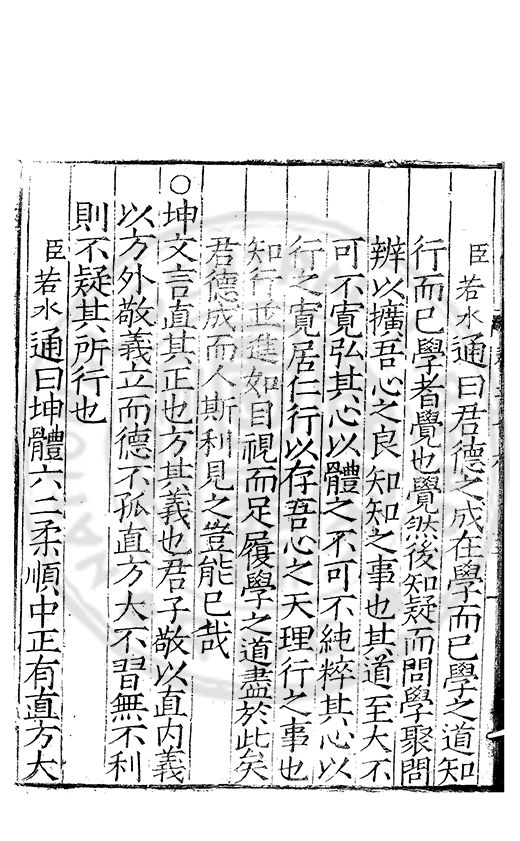 臣若水通曰君德之成在學而已學之道知
行而已學者覺也覺然後知疑而問學聚問
辨以擴吾心之良知知之事也其道至大不
可不寛弘其心以體之不可不純粹其心以
行之寛居仁行以存吾心之天理行之事也
知行並進如目視而足履學之道盡於此矣
君德成而人斯利見之豈能已哉
○坤文言直其正也方其義也君子敬以直内義
以方外敬義立而德不孤直方大不習無不利
則不疑其所行也
臣若水通曰坤體六二柔順中正有直方大